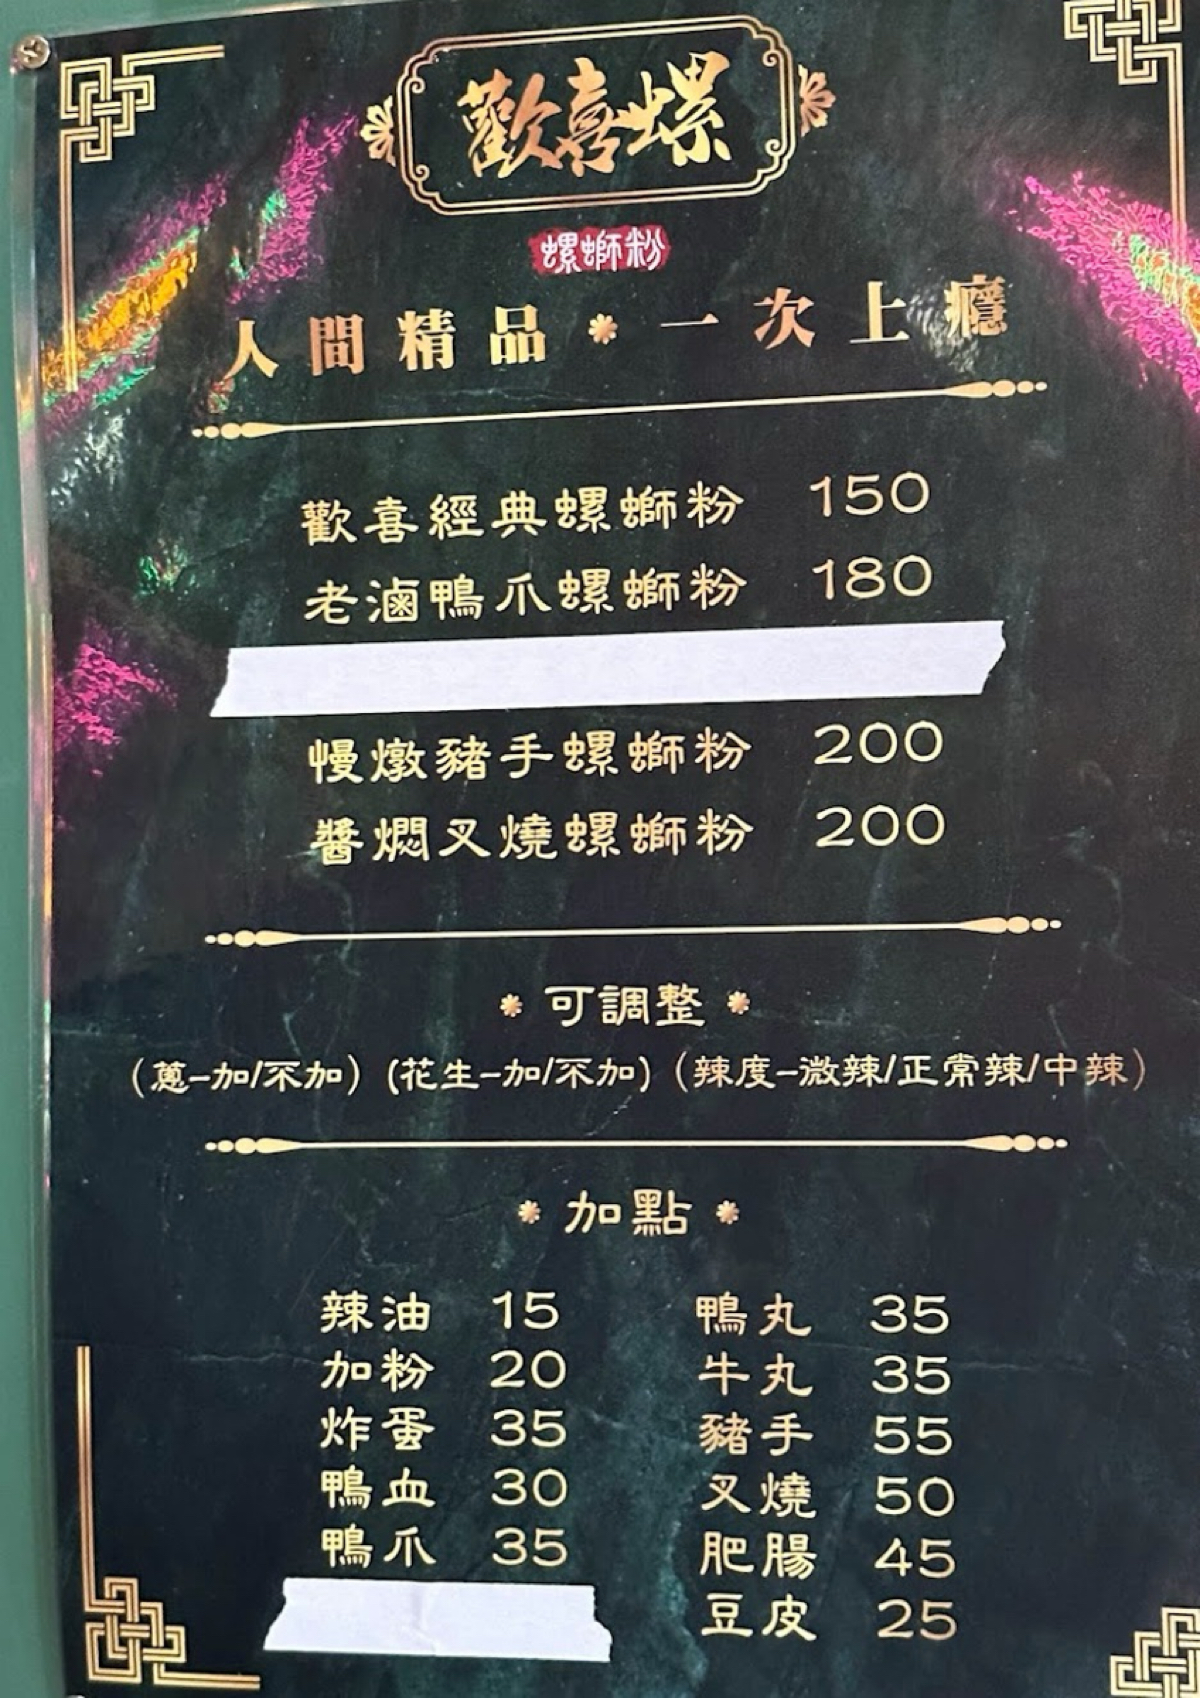 歡喜螺
螺螄粉
人間精品＊一次上癮
歡喜經典螺螄粉 150
老滷鴨爪螺螄粉 180
慢燉豬手螺螄粉 200
醬燜叉燒螺螄粉 200
＊可調整＊
（蔥-加/不加）(花生-加/不加)（辣度-微辣/正常辣/中辣）
＊加點＊
辣油 15 鴨丸 35
加粉 20 牛丸 35
炸蛋 35 豬手 55
鴨血 30 叉燒 50
鴨爪 35 肥腸 45
豆皮 25